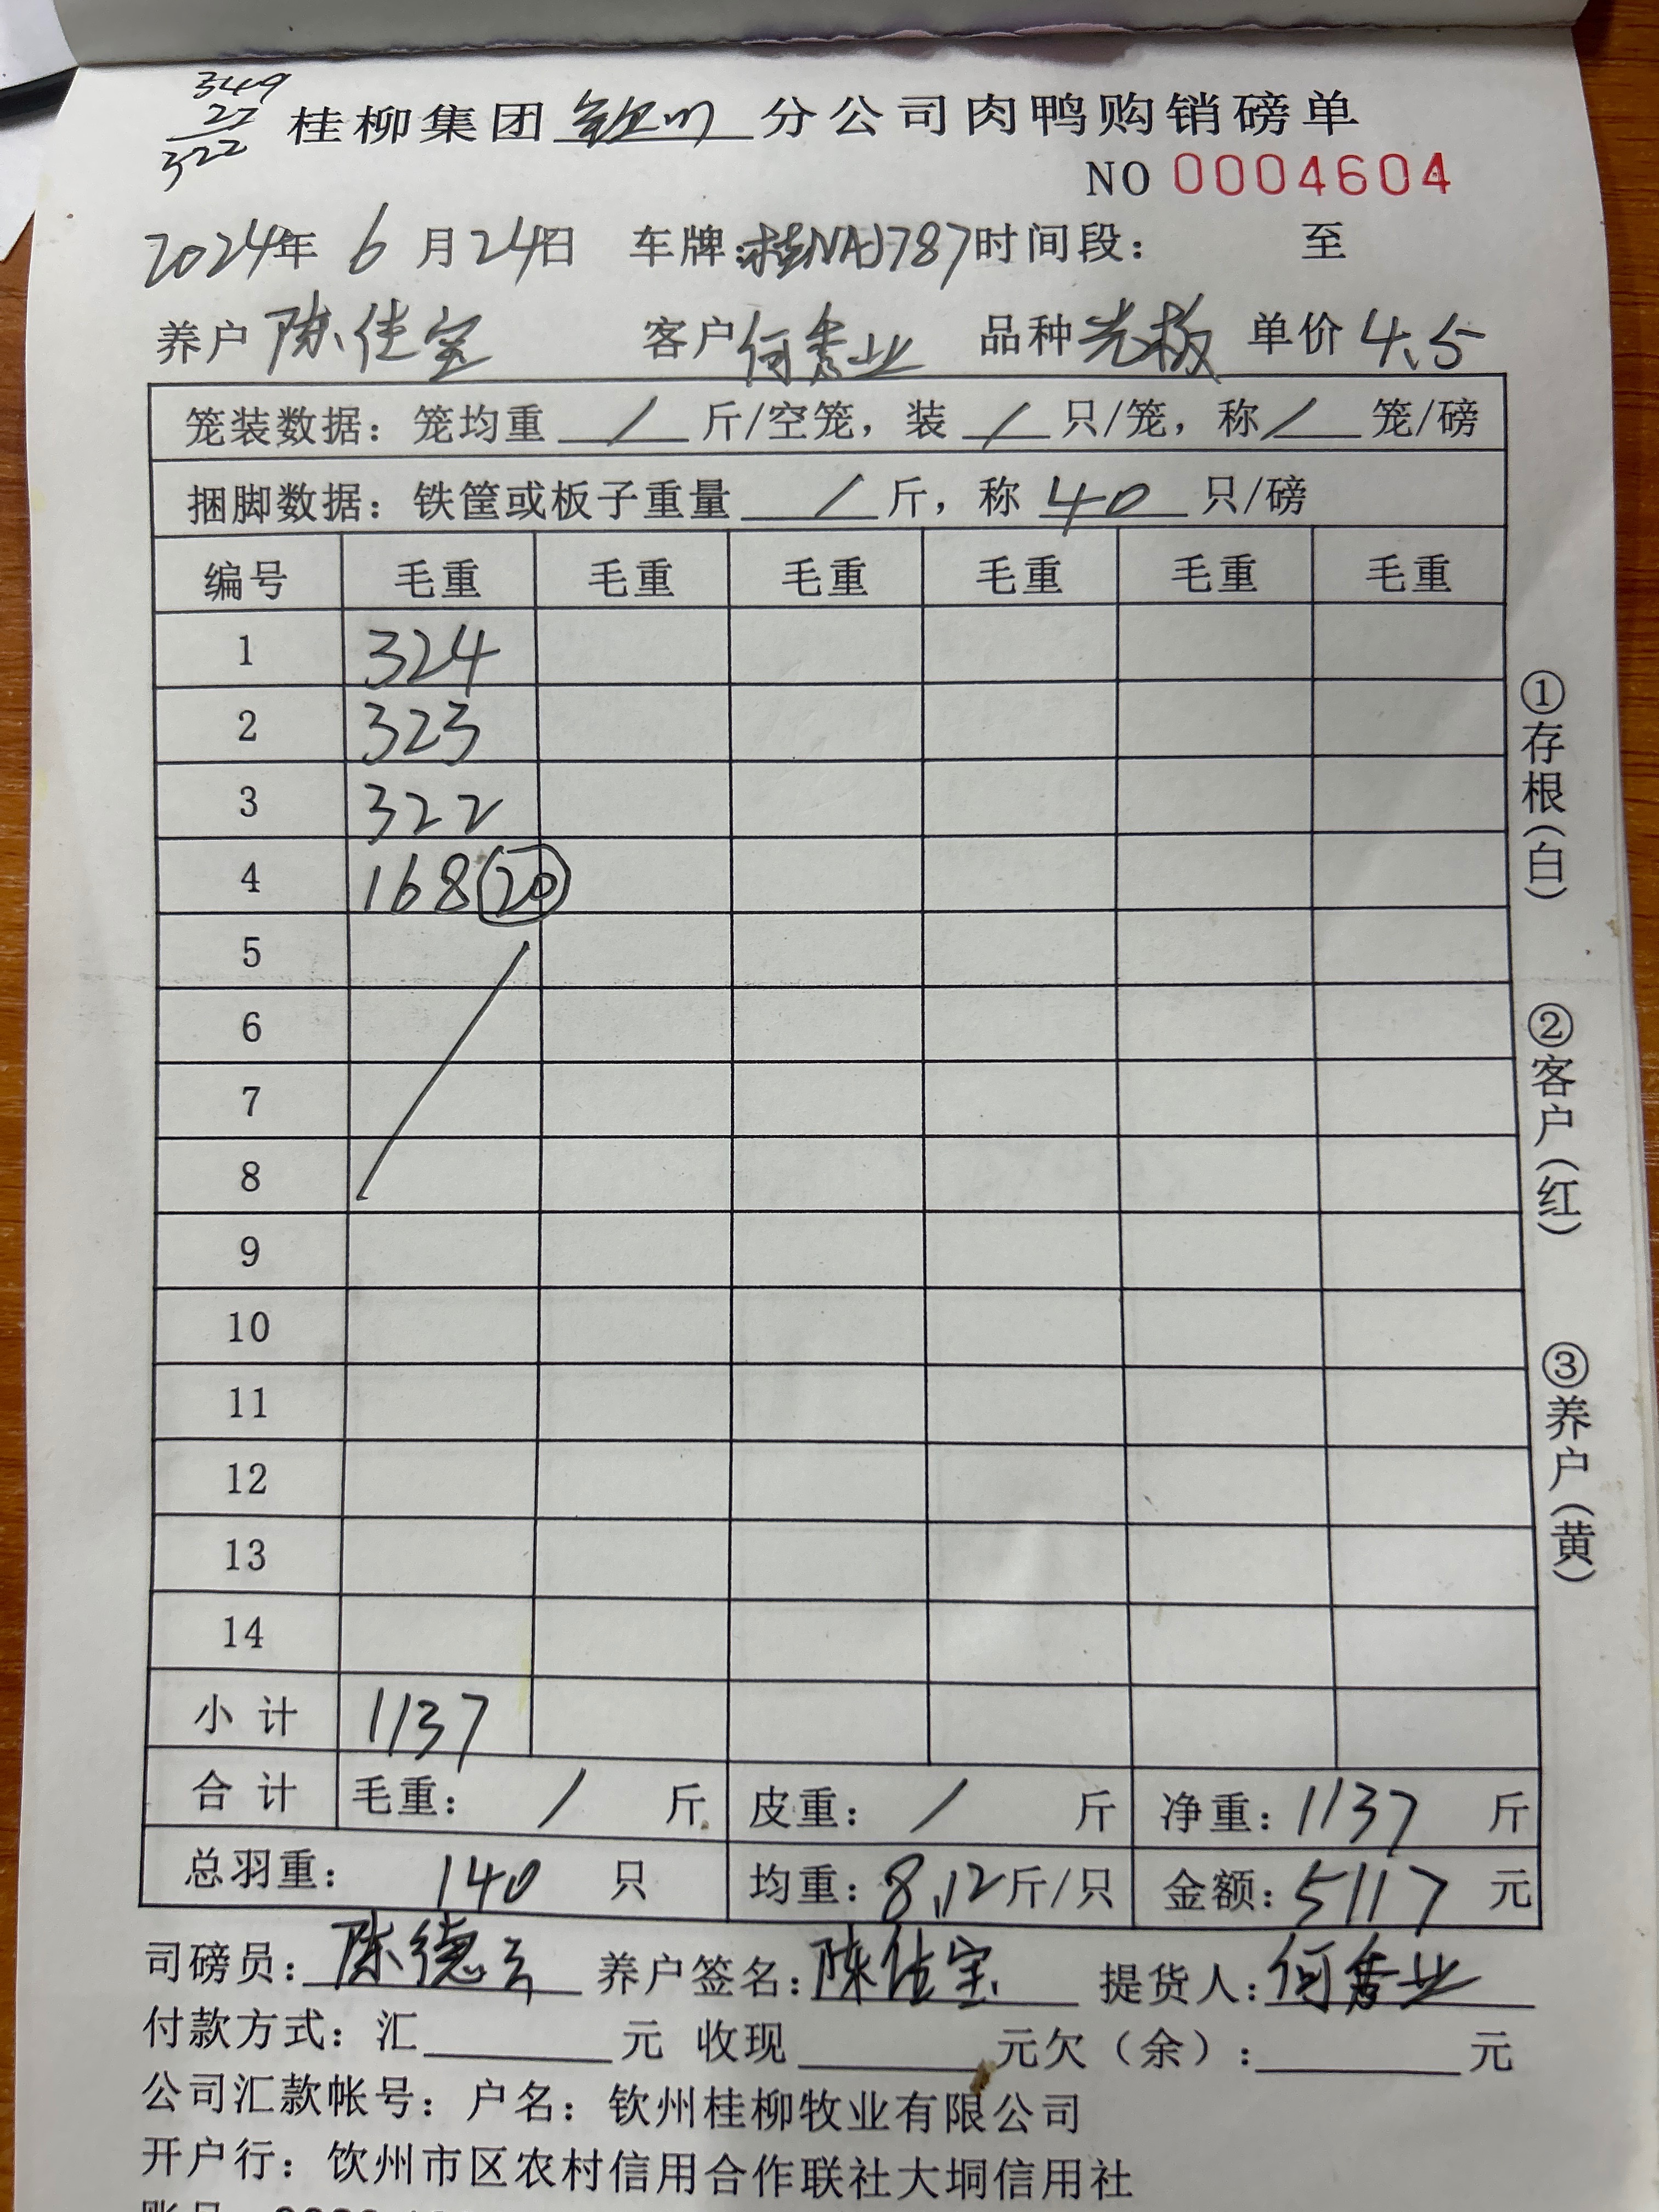 349
27
322
桂柳集团 钦州 分公司肉鸭购销磅单
NO 0004604
2024年 6 月 24日 车牌:桂NAJ787 时间段: 至
养户 陈佳宝 客户 何秀业 品种 光板 单价 4.5
笼装数据：笼均重 / 斤/空笼，装 / 只/笼，称 / 笼/磅
捆脚数据：铁筐或板子重量 / 斤，称 40 只/磅
编号 毛重 毛重 毛重 毛重 毛重 毛重
1 324
2 323
3 322
4 168 ⑳
5
6
7
8
9
10
11
12
13
14
小计 1137
合计 毛重： / 斤 皮重： / 斤 净重：1137 斤
总羽重： 140 只 均重：8.12斤/只 金额：5117 元
司磅员：陈德云 养户签名：陈佳宝 提货人：何秀业
付款方式：汇 元 收现 元欠（余）: 元
公司汇款帐号：户名：钦州桂柳牧业有限公司
开户行：饮州市区农村信用合作联社大垌信用社
①存根（白）
②客户（红）
③养户（黄）